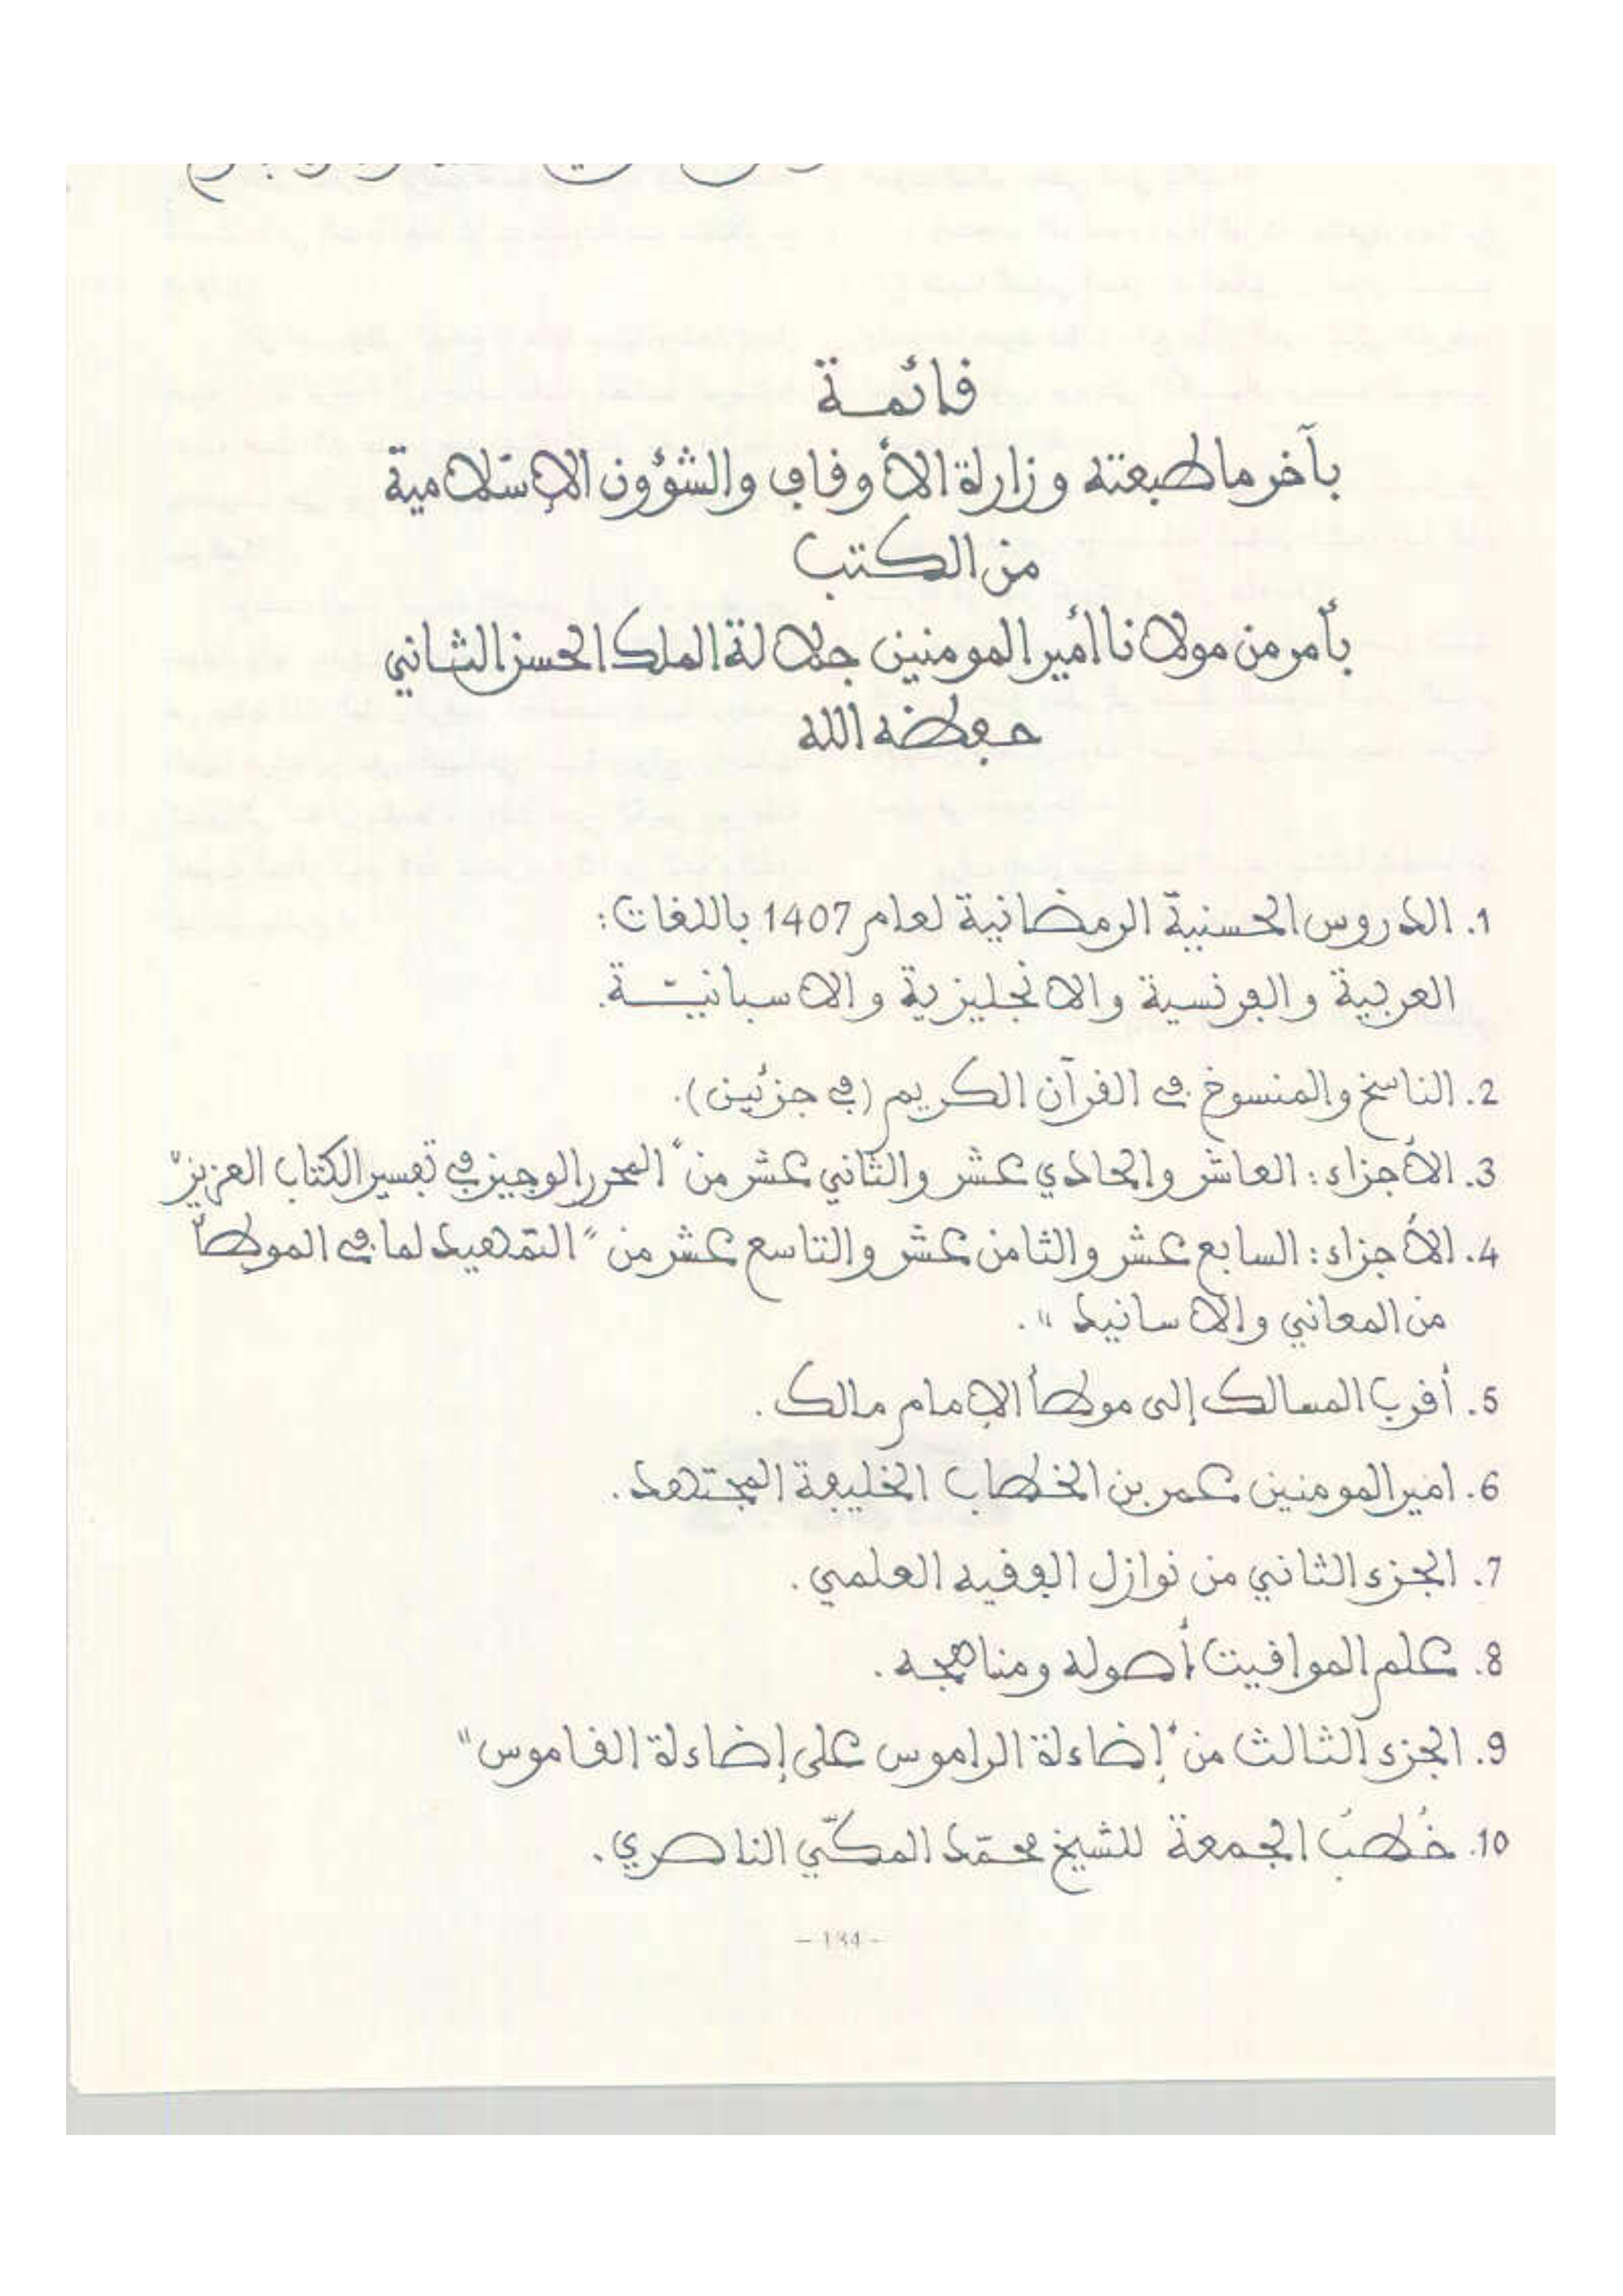 قائمة
بآخر ما طبعته وزارة الأوقاف والشؤون الإسلامية
من الكتب
بأمر من مولانا أمير المومنين جلالة الملك الحسن الثاني
حفظه الله
1. الدروس الحسنية الرمضانية لعام 1407 باللغات:
العربية والفرنسية والانجليزية والاسبانيّة.
2. الناسخ والمنسوخ في القرآن الكريم (في جزئين).
3. الأجزاء: العاشر والحادي عشر والثاني عشر من "المحرر الوجيز في تفسير الكتاب العزيز"
4. الأجزاء: السابع عشر والثامن عشر والتاسع عشر من "التمهيد لما في الموطأ
من المعاني والاسانيد".
5. أقرب المسالك إلى موطأ الإمام مالك.
6. امير المومنين عمر بن الخطاب الخليفة المجتهد.
7. الجزء الثاني من نوازل الفقيه العلمي.
8. علم المواقيت أصوله ومناهجه.
9. الجزء الثالث من "إضاءة الراموس على إضاءة القاموس"
10. خُطبُ الجمعة للشيخ محمّد المكّي الناصري.
- 134 -